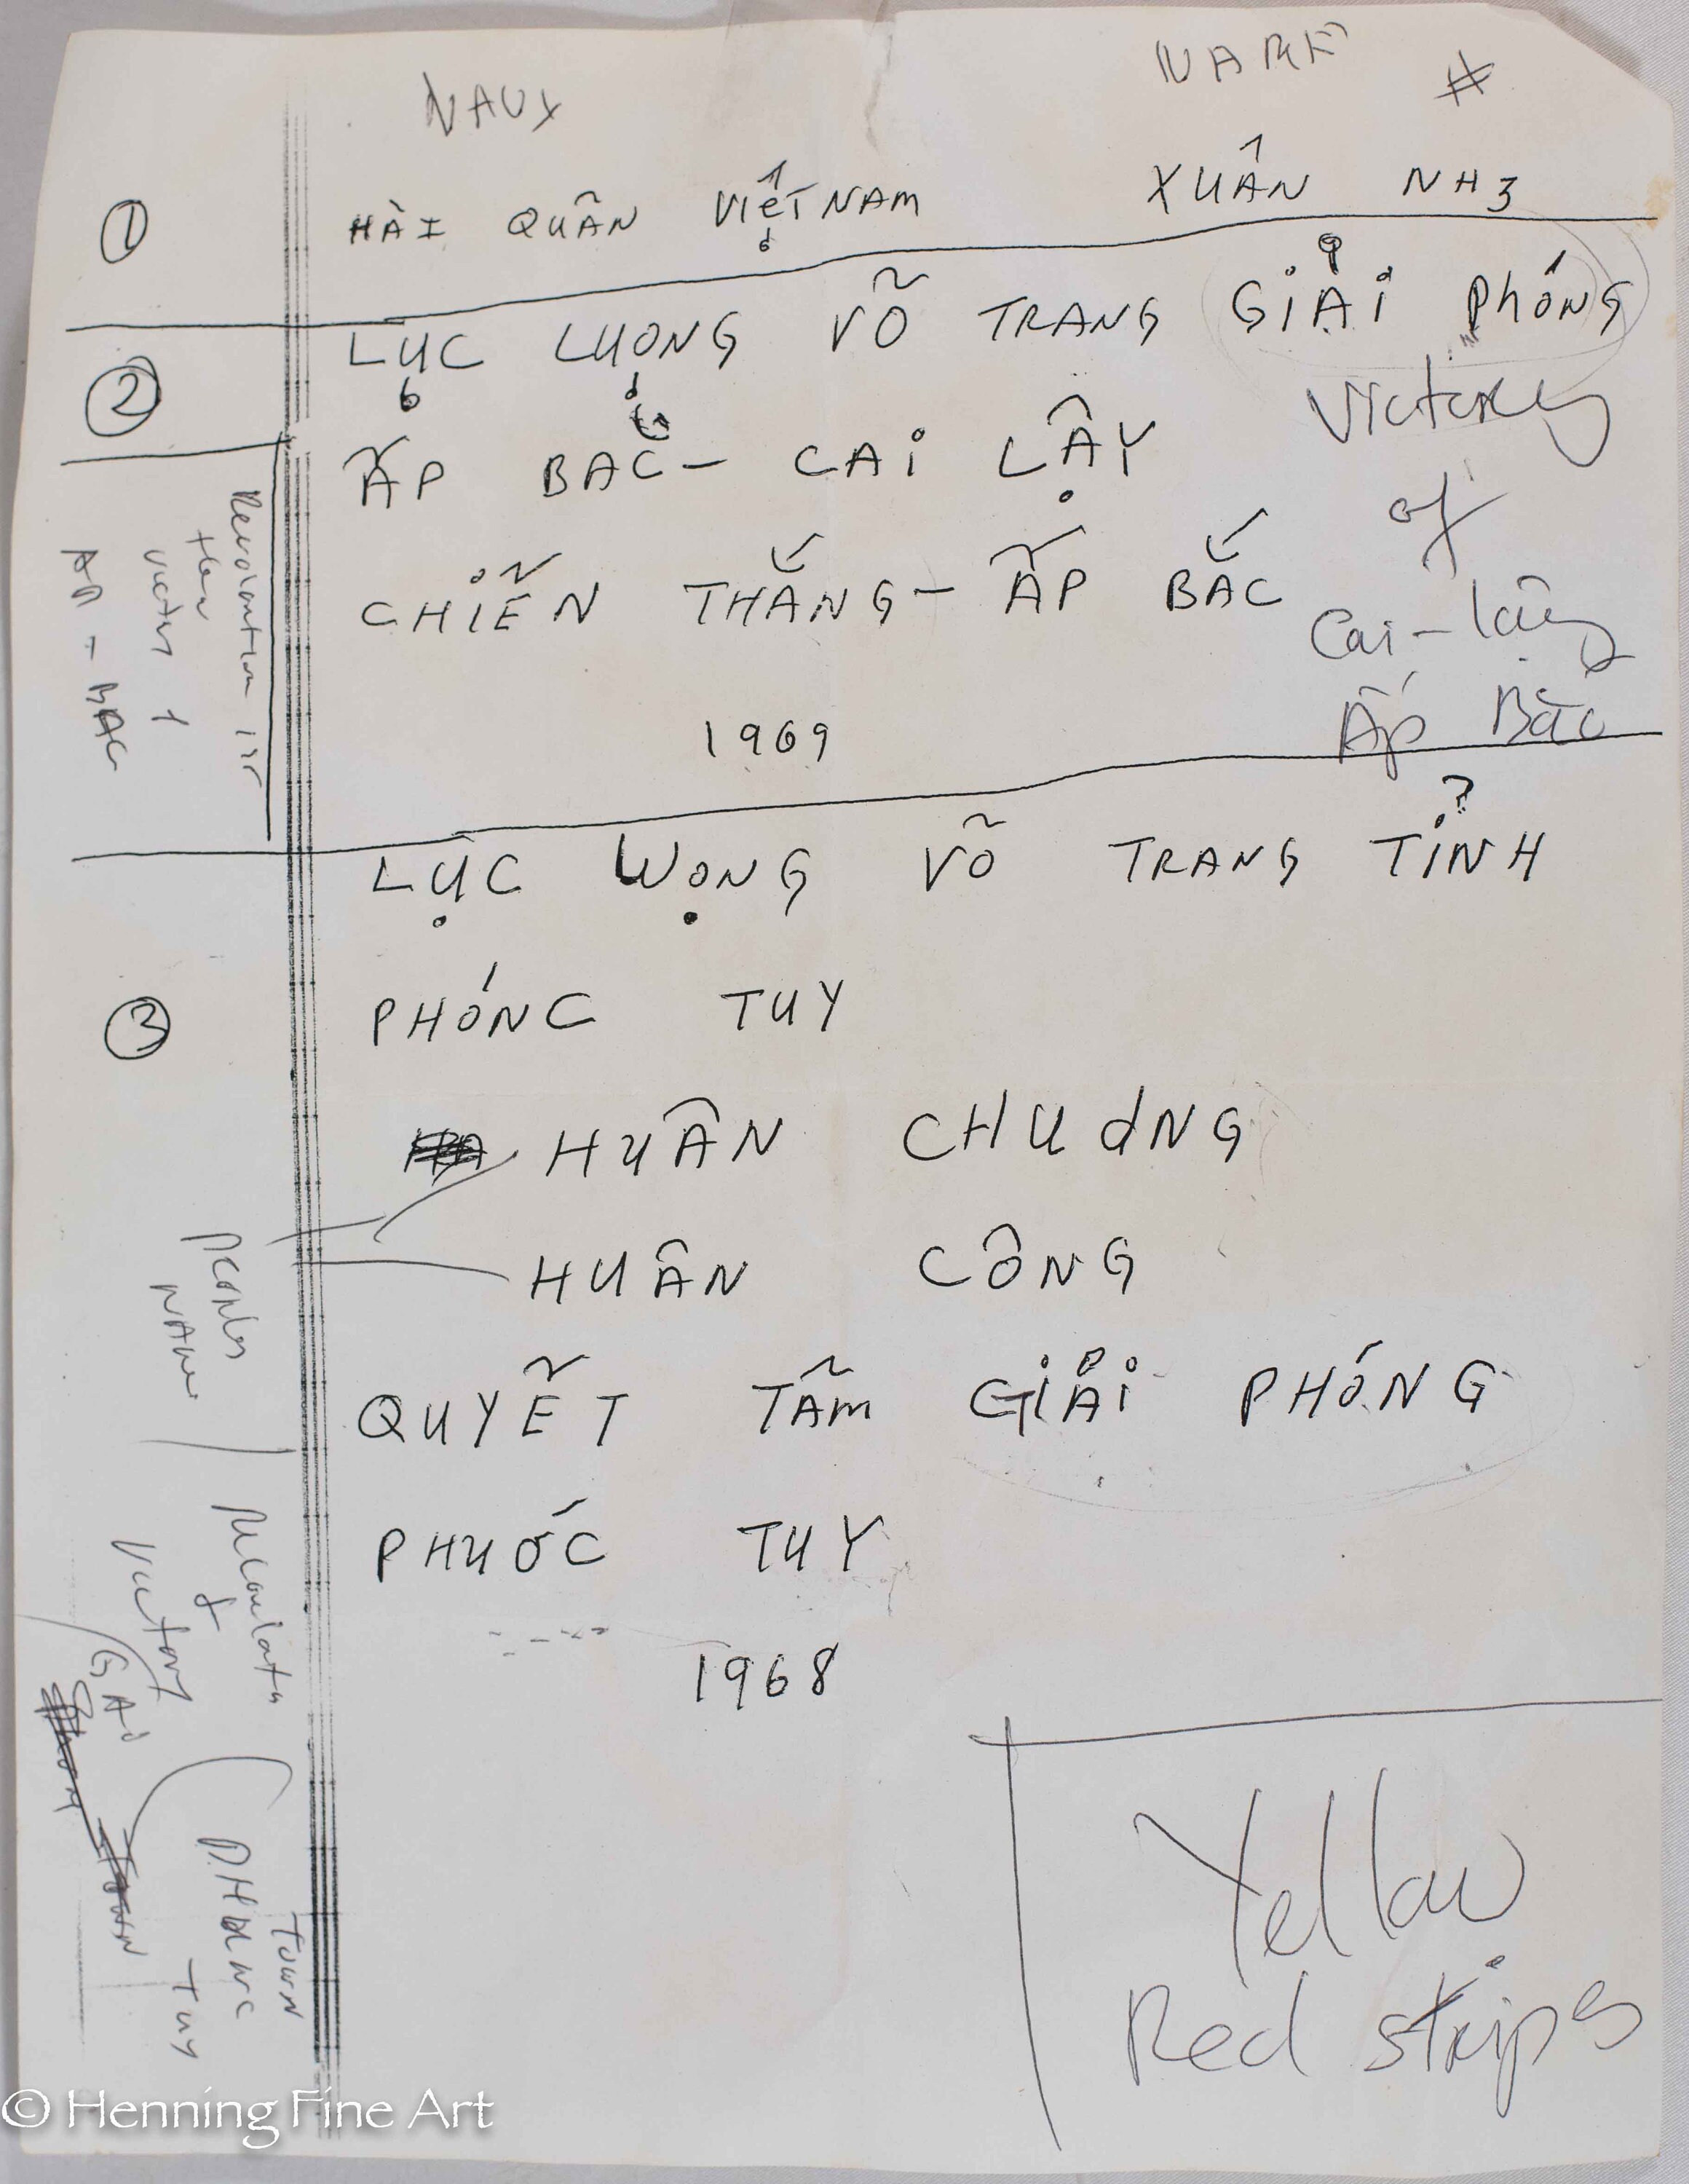 NAVY NAME #
① HÀI QUÂN VIỆTNAM XUÂN NH3
② LỤC LUỌNG VÕ TRANG GIẢI PHÓNG
ẤP BẮC - CAI LẬY
CHIẾN THẮNG - ẤP BẮC
1969
Victory
of
Cai-lậy
Ấp Bắc
Revolution
victory
AP - BAC
③ LỤC LƯỌNG VÕ TRANG TỈNH
PHÓNC TUY
HUÂN CHUƠNG
HUÂN CÔNG
QUYẾT TÂM GIẢI PHÓNG
PHUỚC TUY
1968
NAME
victory
TOWN
TUY
Yellow
Red strips
© Henning Fine Art